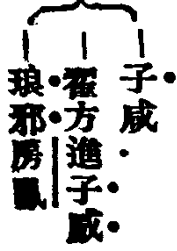 子咸
翟方進子威
琅邪房鳳